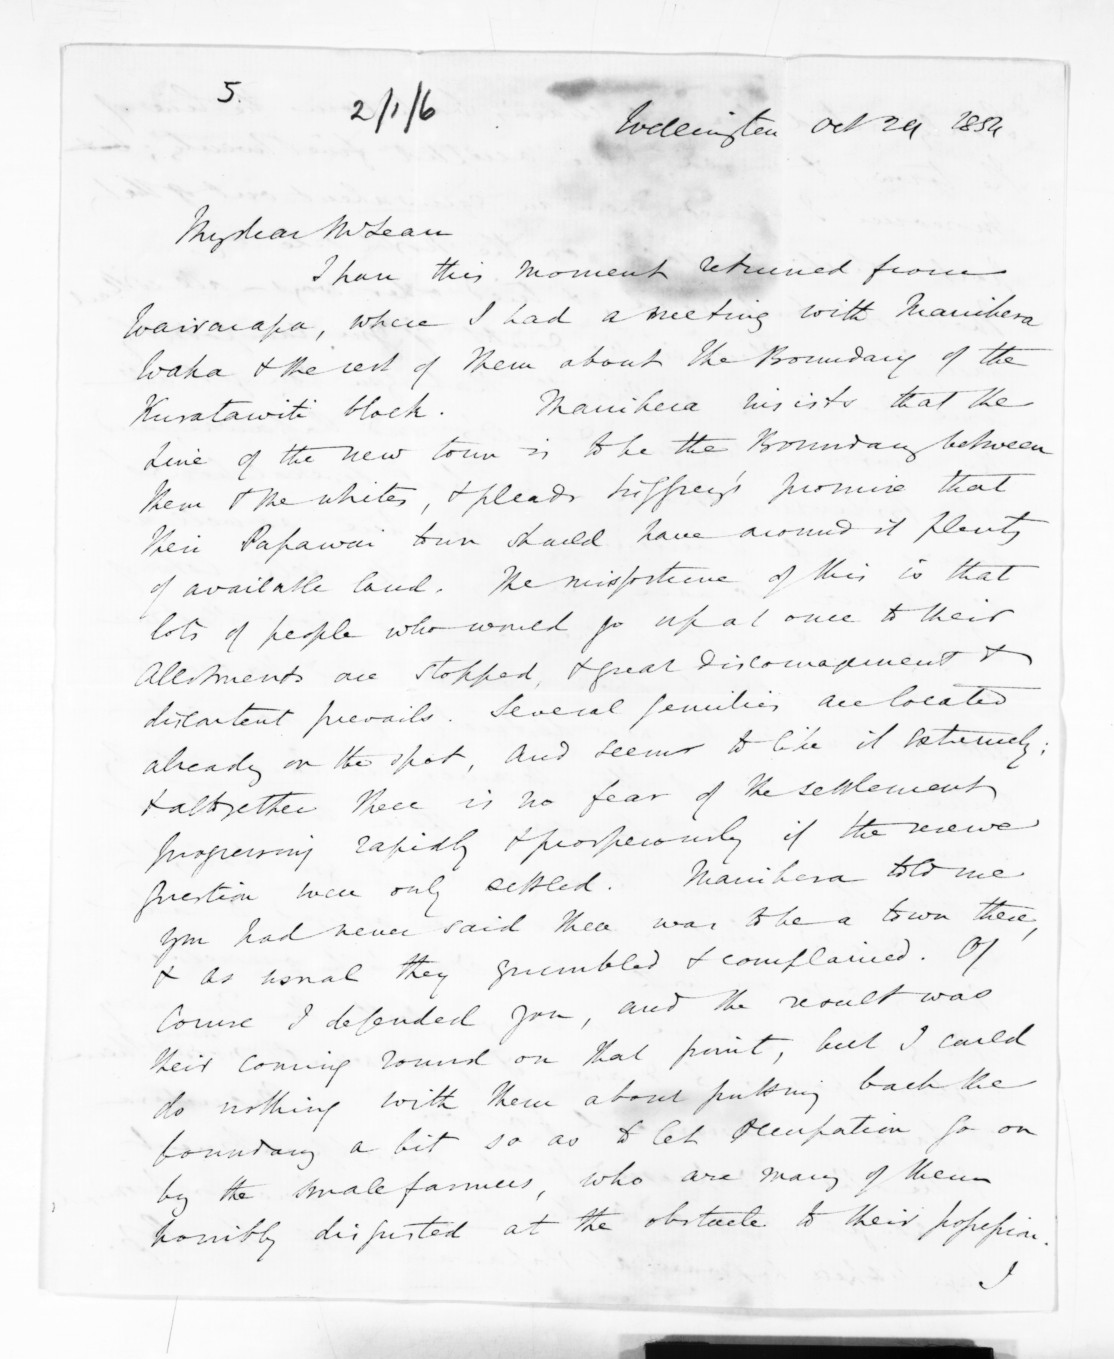 5.
2/1/6
Wellington Oct 29 1854
My dear McLean
I have this moment returned from
Wairarapa, where I had a meeting with Manihera
Waka & the rest of them about the Boundary of the
Kuratawiti block. Manihera insists that the
Line of the new town is to be the Boundary between
them & the whites, & pleads promise that
their Papawai town should have around it plenty
of available land. The misfortune of this is that
lots of people who would go up at once to their
Allotments are stopped, & great discouragement &
discontent prevails. Several families are located
already on the spot, and seems to like it extremely;
& altogether there is no fear of the settlement
progressing rapidly & prosperously if the reserve
question were only settled. Manihera told me
you had never said there was to be a town there,
& as usual they grumbled & complained. Of
Course I defended you, and the result was
their coming round on that point, but I could
do nothing with them about putting back the
boundary a bit so as to let Occupation go on
by the small farmers, who are many of them
horribly disgusted at the obstacle to their possession.
I